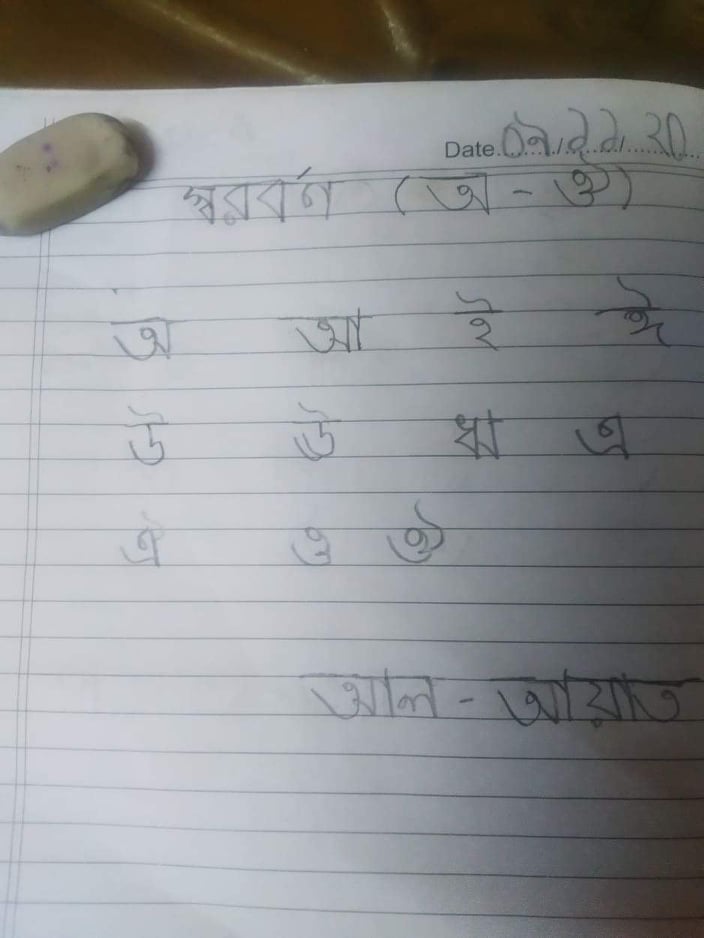 Date. ০৯.১১.২০
স্বরবর্ণ (অ - ঔ)
অ আ ই ঈ
উ ঊ ঋ এ
ঐ ও ঔ
আল - আয়াত